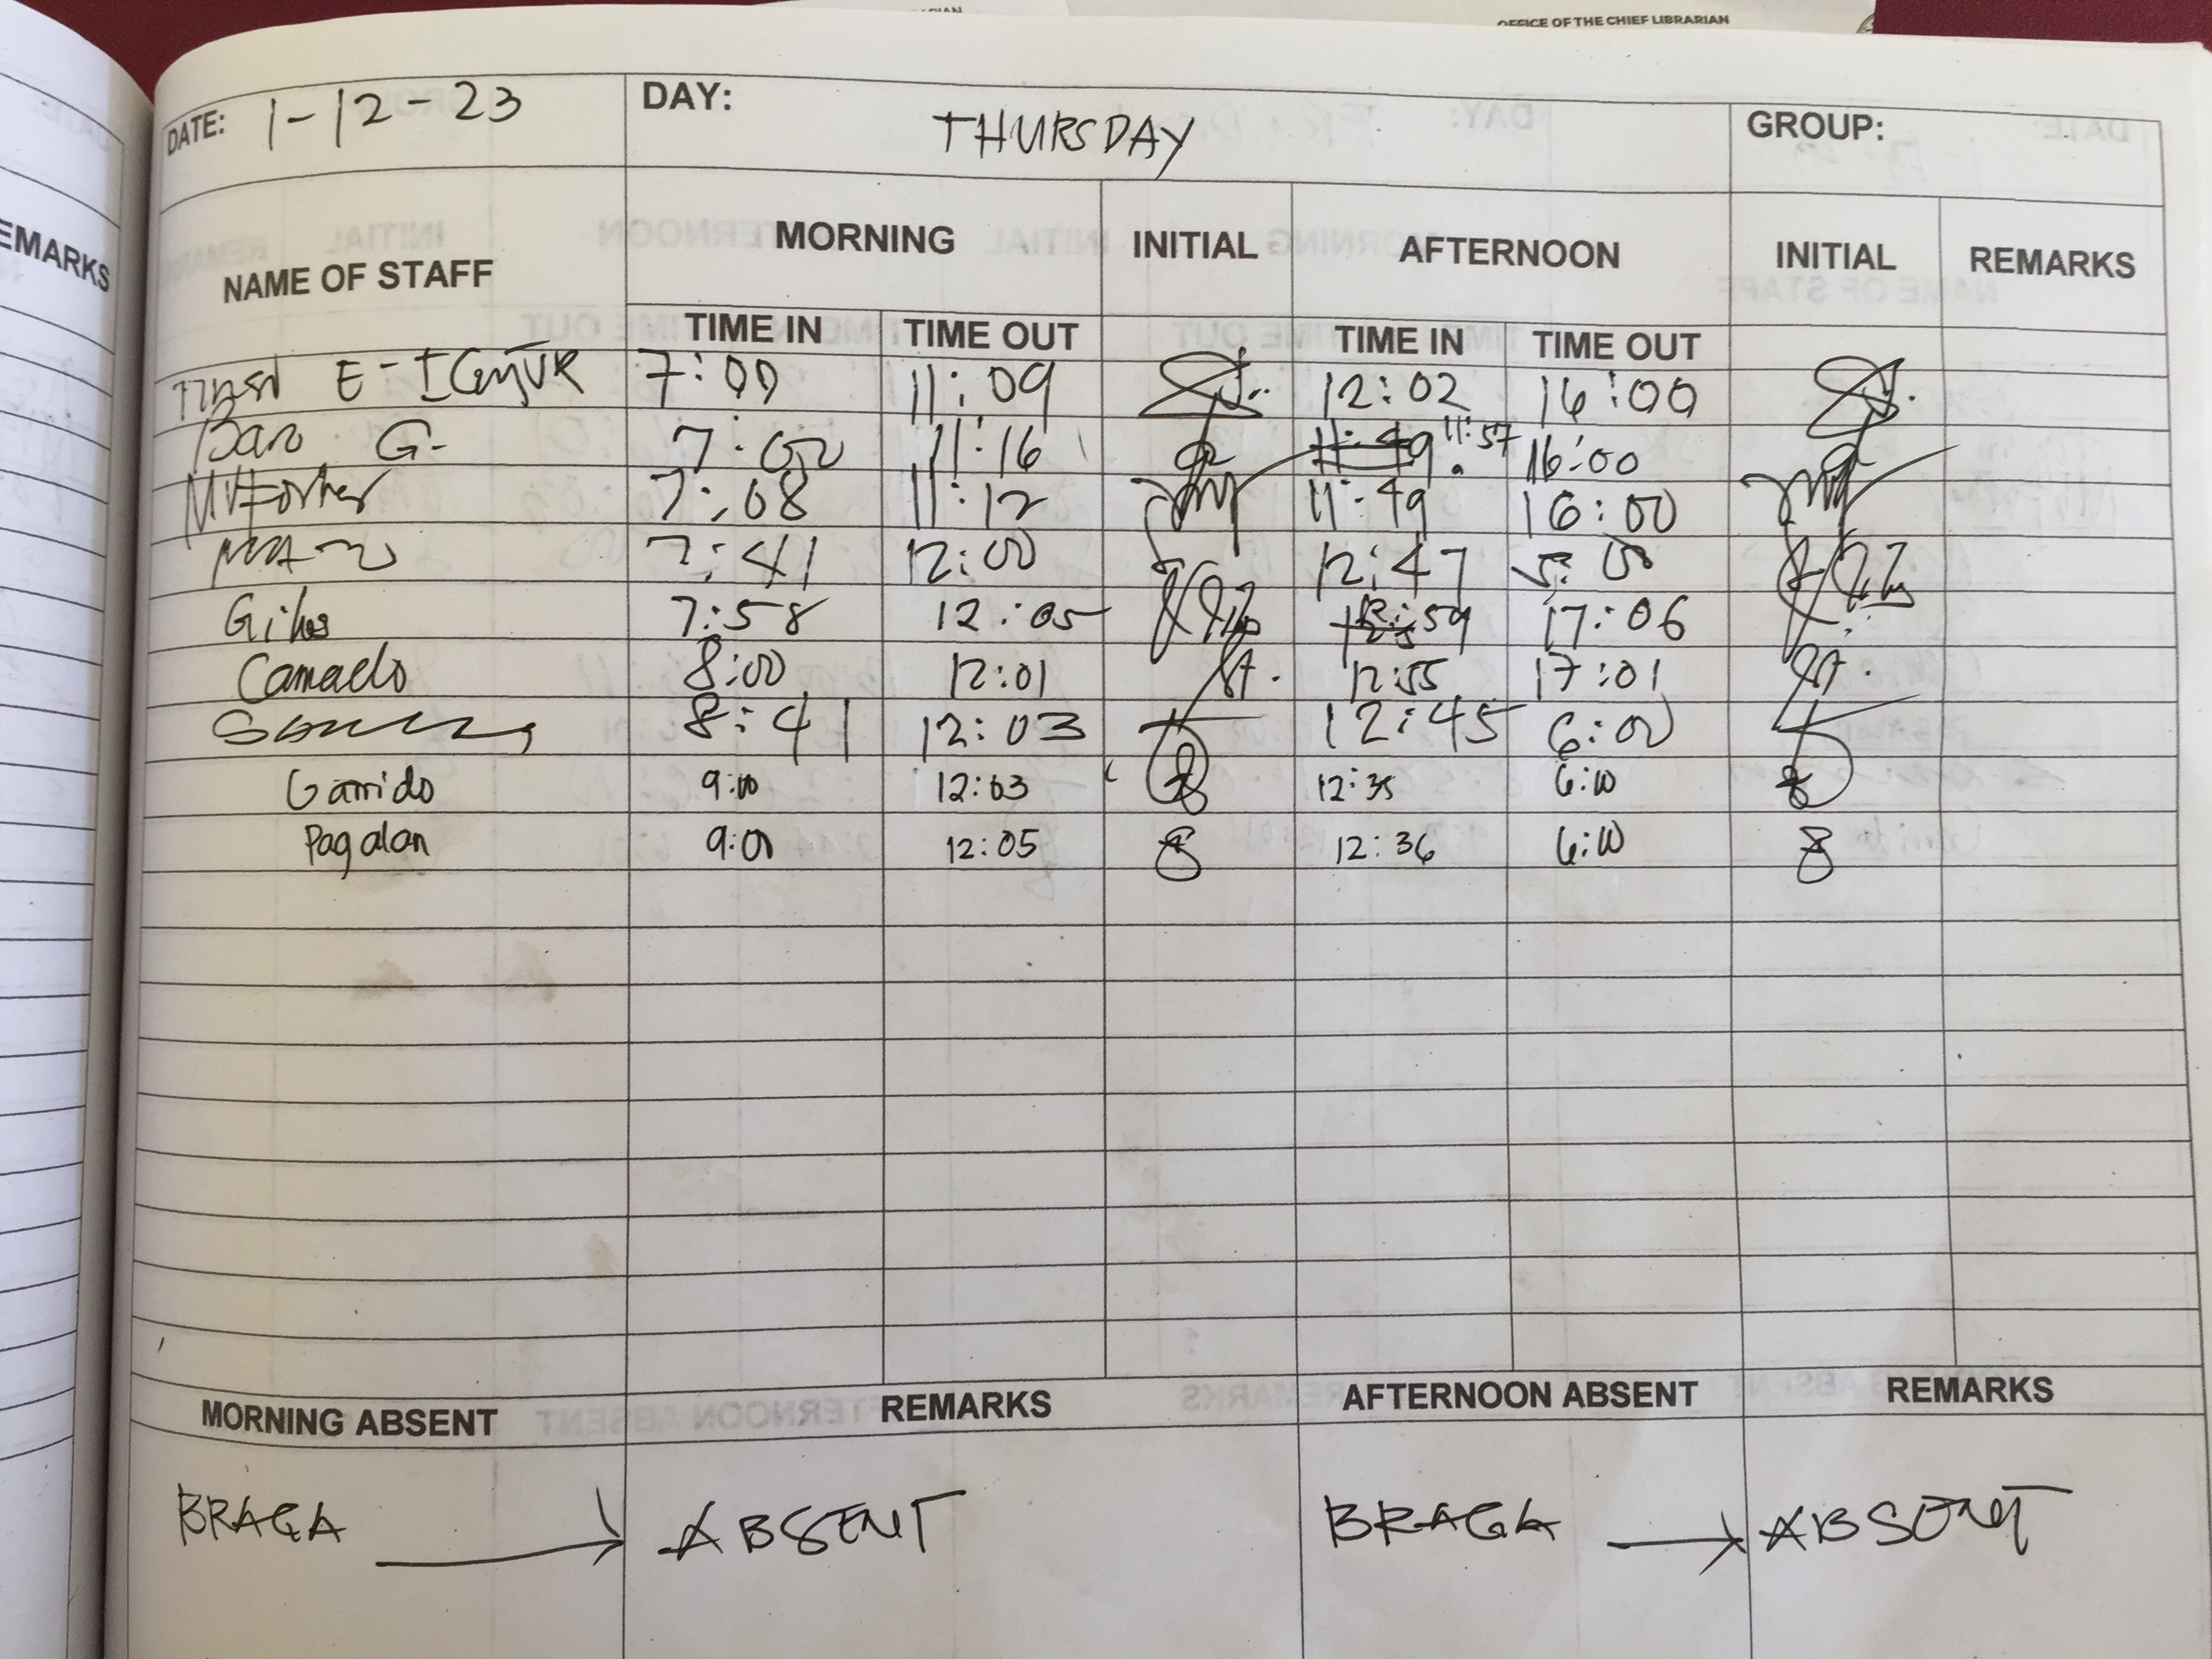 OFFICE OF THE CHIEF LIBRARIAN
EMARKS
DATE: 1-12-23 DAY: THURSDAY GROUP:
NAME OF STAFF MORNING INITIAL AFTERNOON INITIAL REMARKS
TIME IN TIME OUT TIME IN TIME OUT
7:00 11:09 12:02 16:00
G. 7:00 11:16 11:49 11:57 16:00
7:08 11:12 11:49 16:00
7:41 12:00 12:47 5:00
7:58 12:05 12:59 17:06
Camaelo 8:00 12:01 12:55 17:01
8:41 12:03 12:45 6:00
Garrido 9:00 12:03 12:35 6:00
Pagalan 9:00 12:05 12:36 6:00
MORNING ABSENT REMARKS AFTERNOON ABSENT REMARKS
BRAGA → ABSENT BRAGA → ABSENT